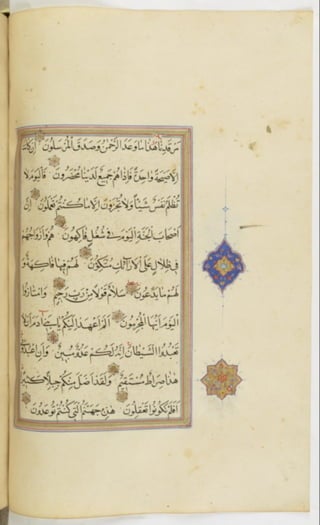 مَرْقَدِنَا هَذَا مَا وَعَدَ الرَّحْمَنُ وَصَدَقَ الْمُرْسَلُونَ اِنْ كَانَتْ
اِلَّا صَيْحَةً وَاحِدَةً فَاِذَا هُمْ جَمِيعٌ لَدَيْنَا مُحْضَرُونَ فَالْيَوْمَ لَا
تُظْلَمُ نَفْسٌ شَيْئًا وَلَا تُجْزَوْنَ اِلَّا مَا كُنْتُمْ تَعْمَلُونَ اِنَّ
اَصْحَابَ الْجَنَّةِ الْيَوْمَ فِي شُغُلٍ فَاكِهُونَ هُمْ وَاَزْوَاجُهُمْ
فِي ظِلَالٍ عَلَى الْاَرَائِكِ مُتَّكِئُونَ لَهُمْ فِيهَا فَاكِهَةٌ وَ
لَهُمْ مَا يَدَّعُونَ سَلَامٌ قَوْلًا مِنْ رَبٍّ رَحِيمٍ وَامْتَازُوا
الْيَوْمَ اَيُّهَا الْمُجْرِمُونَ اَلَمْ اَعْهَدْ اِلَيْكُمْ يَا بَنِي اٰدَمَ اَنْ لَا
تَعْبُدُوا الشَّيْطَانَ اِنَّهُ لَكُمْ عَدُوٌّ مُبِينٌ وَاَنِ اعْبُدُونِي
هَذَا صِرَاطٌ مُسْتَقِيمٌ وَلَقَدْ اَضَلَّ مِنْكُمْ جِبِلًّا كَثِيرًا
اَفَلَمْ تَكُونُوا تَعْقِلُونَ هَذِهِ جَهَنَّمُ الَّتِي كُنْتُمْ تُوعَدُونَ